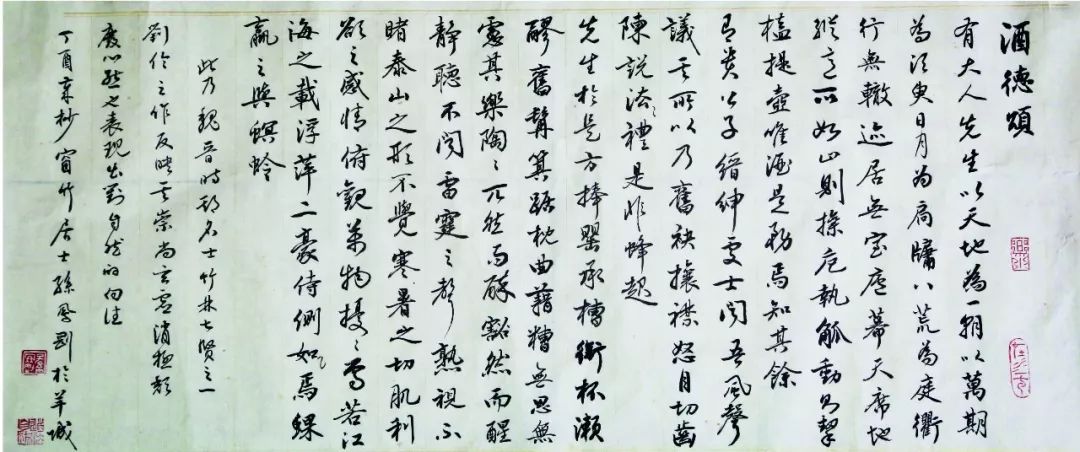 酒德頌
有大人先生以天地為一朝以萬期
為須臾日月為扃牖八荒為庭衢
行無轍迹居無室廬幕天席地
縱意所如止則操卮執觚動則挈
榼提壺唯酒是務焉知其餘
有貴公子縉紳處士聞吾風聲
議其所以乃奮袂攘襟怒目切齒
陳說法禮是非蜂起
先生於是方捧罌承槽銜杯漱
醪奮髯箕踞枕曲藉糟無思無
慮其樂陶々兀然而醉豁然而醒
靜聽不聞雷霆之聲熟視不
睹泰山之形不覺寒暑之切肌利
欲之感情俯觀萬物擾々焉若江
海之載浮萍二豪侍側如焉蜾
蠃之與螟蛉
此乃魏晉時期名士竹林七賢之一
劉伶之作反映其崇尚玄虛消極頹
廢心態之表現出對自然的向往
丁酉杪窗竹居士孫鳳剛於羊城